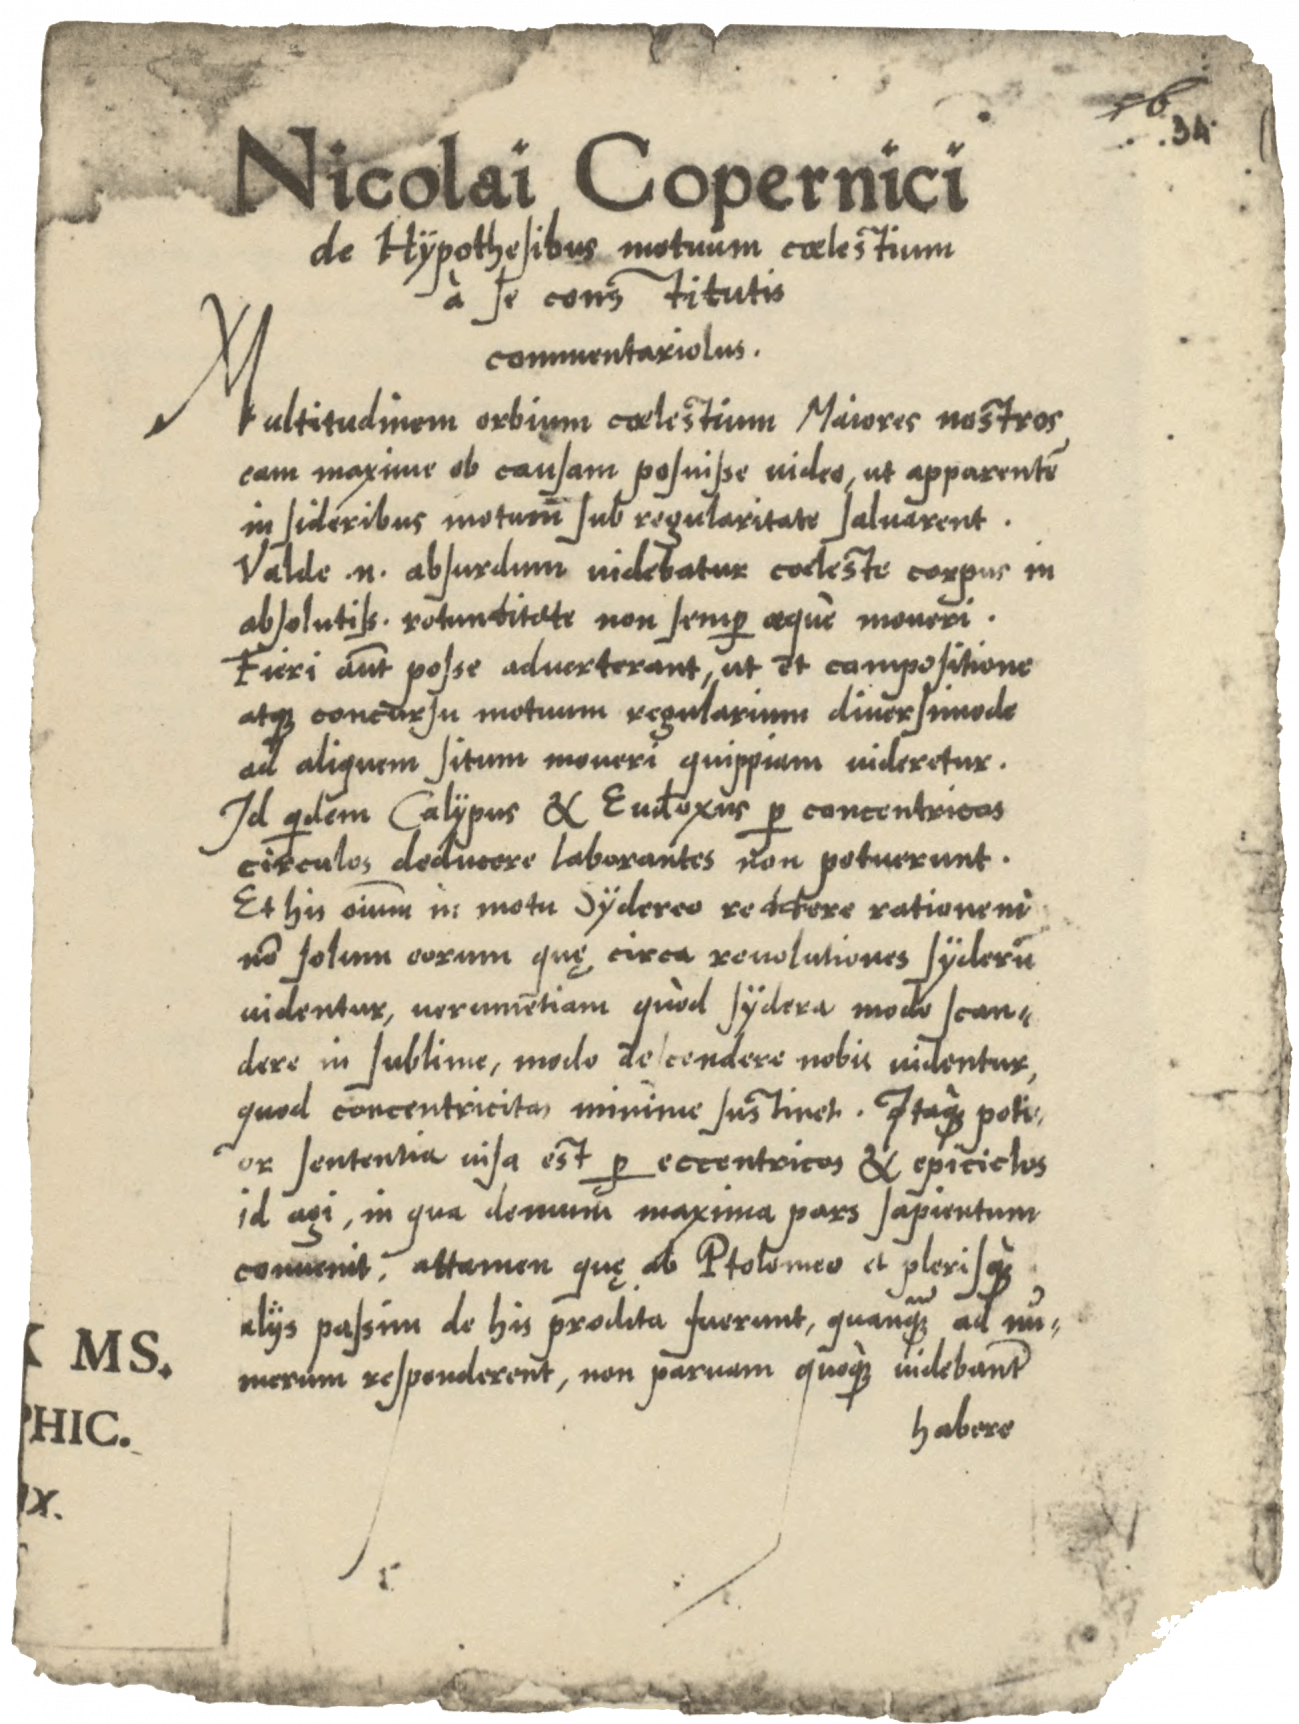 34
Nicolai Copernici
de Hÿpothesibus motuum cœlestium
à se constitutis
commentariolus.
Multitudinem orbium cœlestium Maiores nostros
eam maxime ob causam posuisse uideo, ut apparentē
in sideribus motum sub regularitate saluarent.
Valde .n. absurdum uidebatur cœleste corpus in
absolutiss. rotunditate non semꝑ æque moueri.
Fieri aūt posse aduerterant, ut et compositione
atqꝫ concursu motuum regularium diuersimode
ad aliquem situm moueri quippiam uideretur.
Id qdem Calÿpus & Eudoxus ꝑ concentricos
circulos deducere laborantes non potuerunt.
Et his oium in motu Sÿdereo reddere rationem
nō solum eorum quę circa reuolutiones sÿderū
uidentur, uerumetiam quod sÿdera modo scan„
dere in sublime, modo descendere nobis uidentur,
quod concentricitas minime sustinet. Itaqꝫ poti„
or sententia uisa est ꝑ eccentricos & epiciclos
id agi, in qua demum maxima pars sapientum
conuenit, attamen quę ab Ptolomeo et plerisqꝫ
alÿs passim de his prodita fuerunt, quanqꝫ ad nu„
merum responderent, non paruam quoqꝫ uidebant
habere
MS.
PHIC.
X.